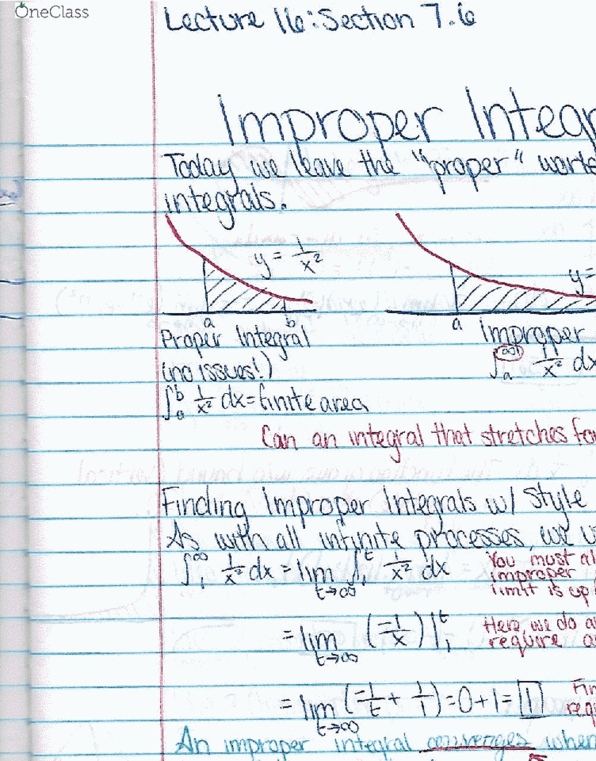 OneClass
Lecture 16: Section 7.6
Improper Integr
Today we leave the "proper" world
integrals.
y = 1/x²
y =
a b
a
Proper Integral
Improper
(no issues!)
∫ₐ^∞ 1/x² dx
∫ₐᵇ 1/x² dx = finite area
Can an integral that stretches for
Finding Improper Integrals w/ Style
As with all infinite processes, we u
∫₁^∞ 1/x² dx = lim t→∞ ∫₁ᵗ 1/x² dx
You must al
improper
limit is up
= lim t→∞ (-1/x)|₁ᵗ
Here, we do a
require a
= lim t→∞ (-1/t + 1/1) = 0+1 = 1
Fin
req
An improper integral converges when